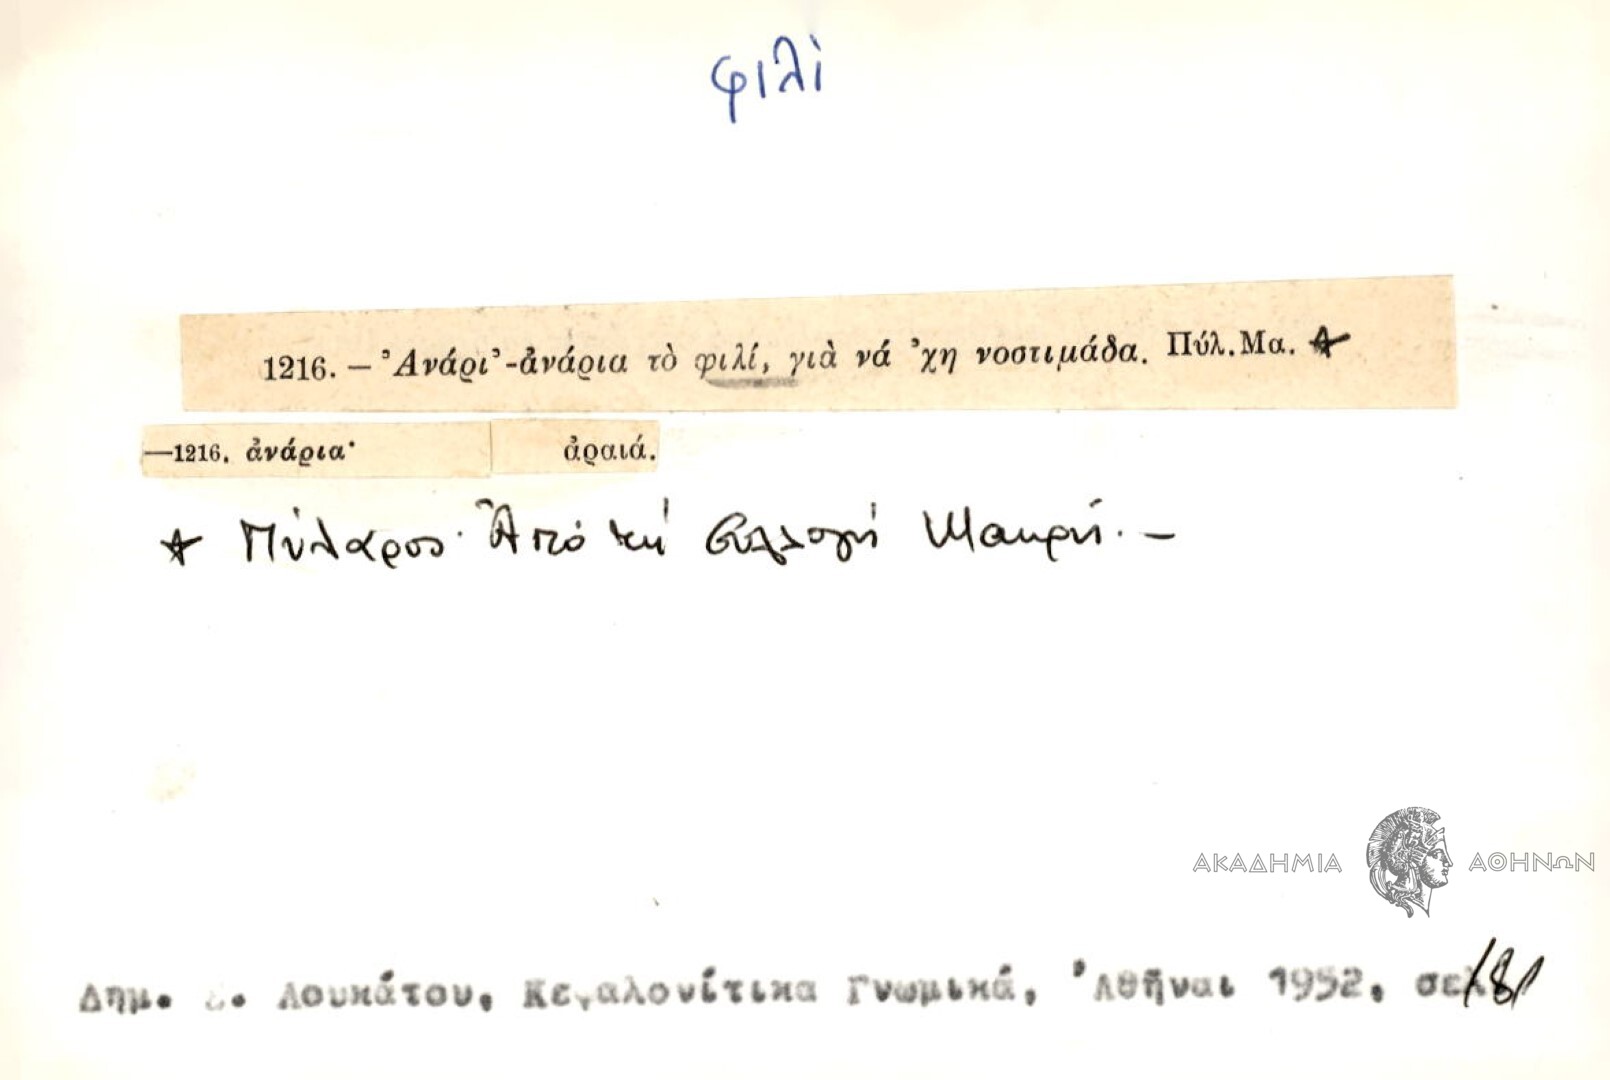 φιλὶ
1216. — Ἀνάρι’-ἀνάρια τὸ φιλί, γιὰ νά ’χη νοστιμάδα. Πύλ. Μα. ☆
—1216. ἀνάρια· ἀραιά.
☆ Πύλαρος· Ἀπό τή συλλογή Μακρή. —
ΑΚΑΔΗΜΙΑ ΑΘΗΝΩΝ
Δημ. Σ. Λουκάτου, Κεφαλονίτικα Γνωμικά, Ἀθῆναι 1952, σελ. 181